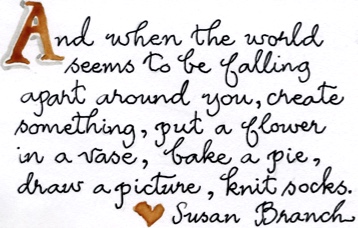 And when the world
seems to be falling
apart around you, create
something, put a flower
in a vase, bake a pie,
draw a picture, knit socks.
Susan Branch